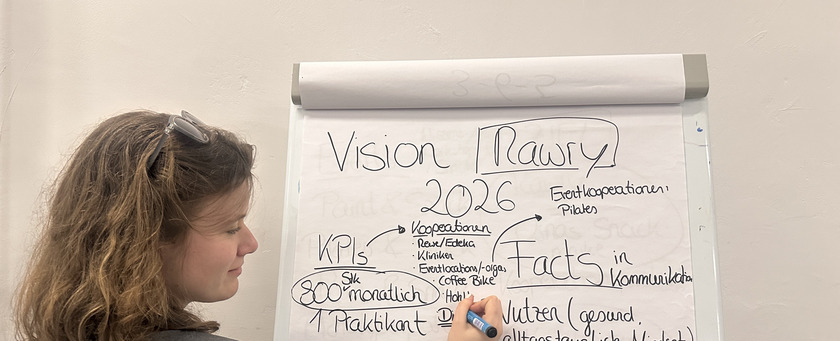 Vision Rawry
2026
Eventkooperationen:
Pilates
Kooperationen
· Rewe/Edeka
· Kliniken
· Eventlocations/-orgas
· Coffee Bike
KPIs
800 Stk monatlich
1 Praktikant
Facts in
Kommunikation
Nutzen (gesund,
alltagstauglich,